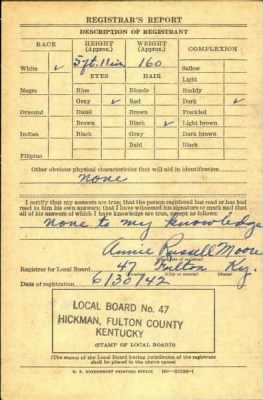 REGISTRAR'S REPORT
DESCRIPTION OF REGISTRANT
RACE HEIGHT (Approx.) WEIGHT (Approx.) COMPLEXION
White ✓ 5 ft. 11 in. 160 Sallow
EYES HAIR Light
Negro Blue Blonde Ruddy
Gray ✓ Red Dark ✓
Oriental Hazel Brown Freckled
Brown Black ✓ Light brown
Indian Black Gray Dark brown
Bald Black
Filipino
Other obvious physical characteristics that will aid in identification
None
I certify that my answers are true; that the person registered has read or has had
read to him his own answers; that I have witnessed his signature or mark and that
all of his answers of which I have knowledge are true, except as follows:
None to my knowledge
Annie Russell Moore
Registrar for Local Board 47 Fulton Ky.
Date of registration 6/30/42
LOCAL BOARD No. 47
HICKMAN, FULTON COUNTY
KENTUCKY
(STAMP OF LOCAL BOARD)
(The stamp of the Local Board having jurisdiction of the registrant
shall be placed in the above space)
U. S. GOVERNMENT PRINTING OFFICE